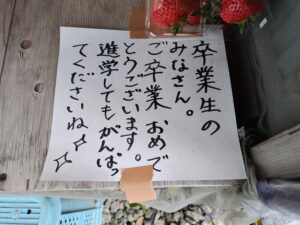 卒業生の
みなさん。
ご卒業おめで
とうございます。
進学してもがんばっ
てくださいね